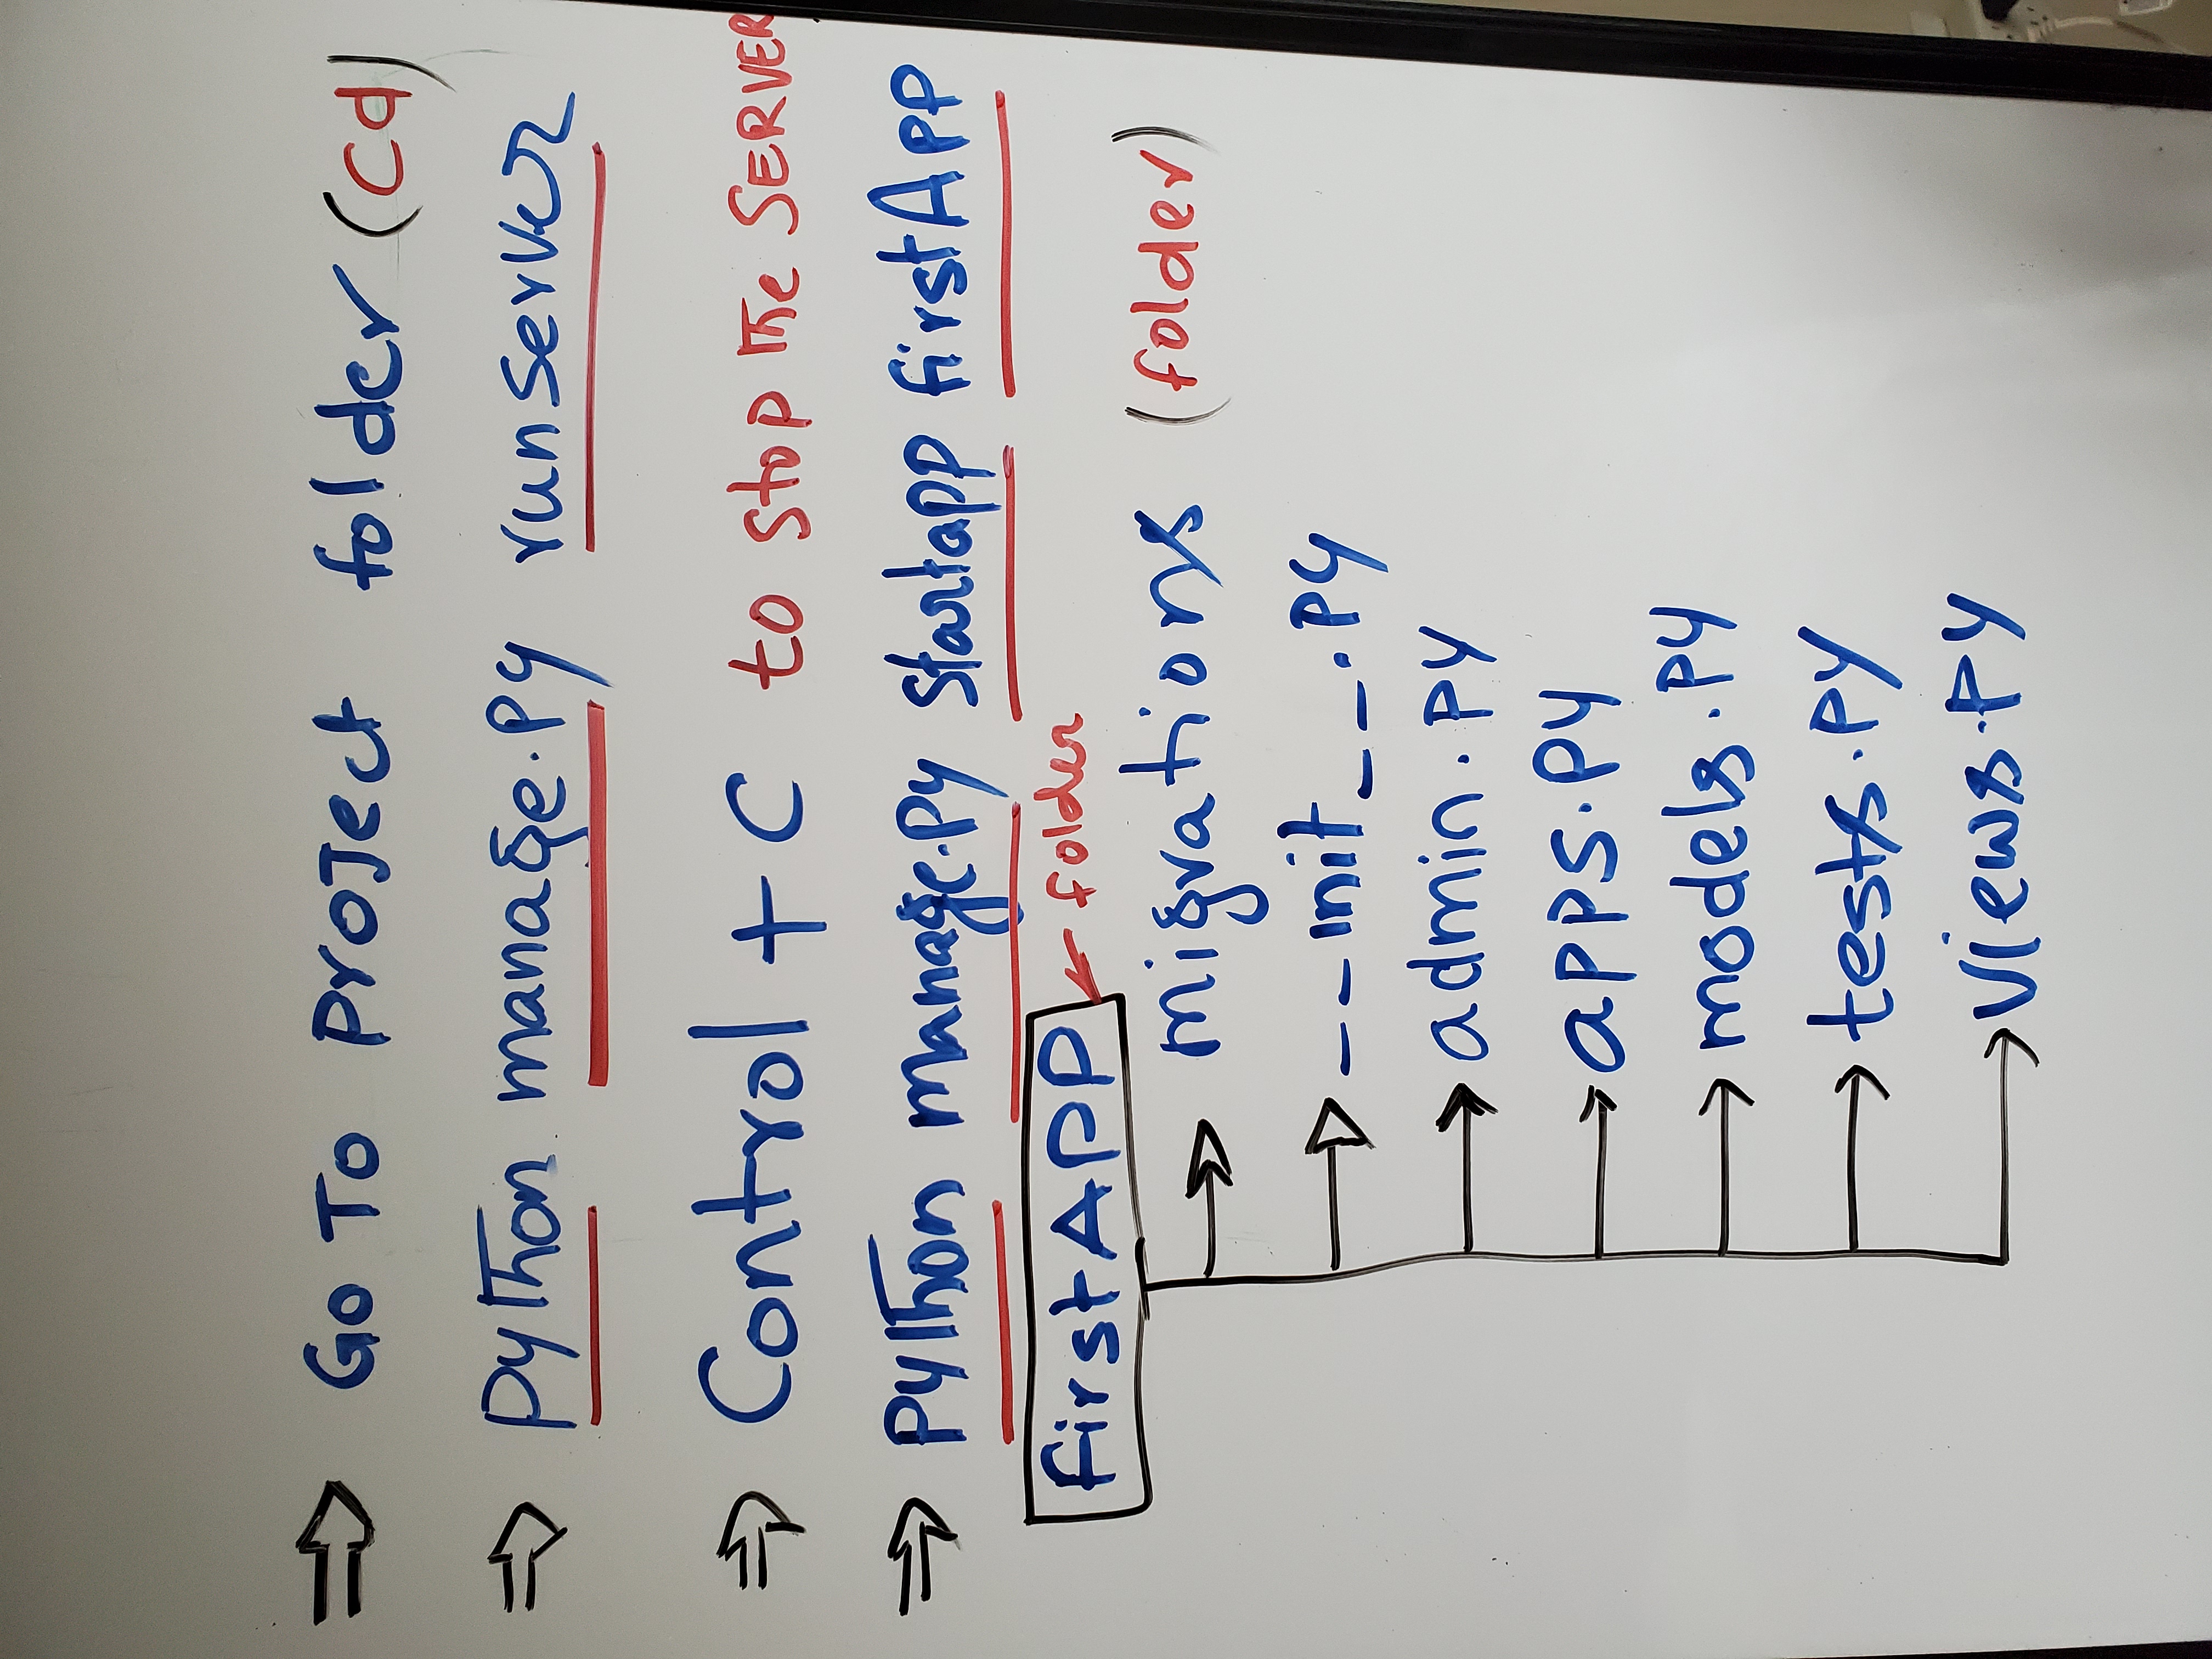 ⇒ Go To Project folder (cd)
⇒ Python manage.py runserver
⇒ Control + C to stop the SERVER
⇒ Python manage.py startapp firstApp
firstAPP ← folder
→ migrations (folder)
→ __init__.py
→ admin.py
→ apps.py
→ models.py
→ tests.py
→ views.py